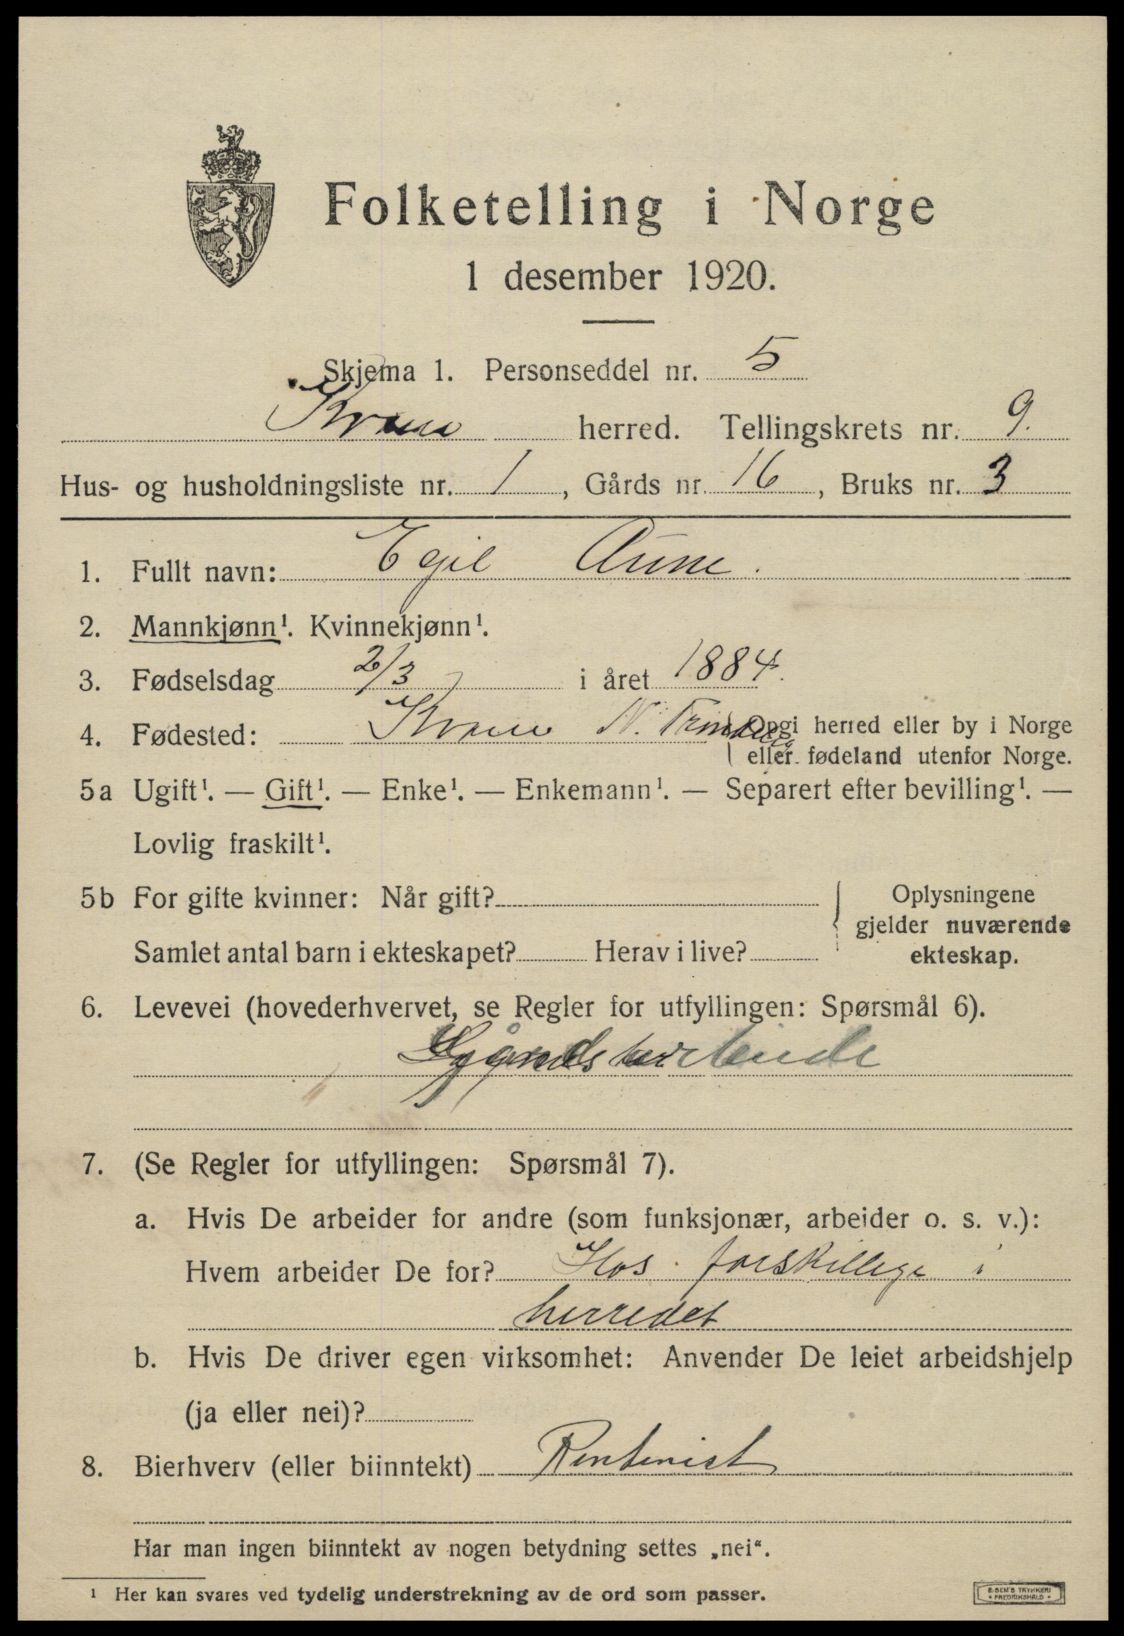 Folketelling i Norge
1 desember 1920.
Skjema 1. Personseddel nr. 5
Kvam herred. Tellingskrets nr. 9.
Hus- og husholdningsliste nr. 1, Gårds nr. 16, Bruks nr. 3
1. Fullt navn: Egil Aune.
2. Mannkjønn¹. Kvinnekjønn¹.
3. Fødselsdag 2/3 i året 1884.
4. Fødested: Kvam N. Trondelag Opgi herred eller by i Norge
eller fødeland utenfor Norge.
5a Ugift¹. — Gift¹. — Enke¹. — Enkemann¹. — Separert efter bevilling¹. —
Lovlig fraskilt¹.
5b For gifte kvinner: Når gift? Oplysningene
gjelder nuværende
Samlet antal barn i ekteskapet? Herav i live? ekteskap.
6. Levevei (hovederhvervet, se Regler for utfyllingen: Spørsmål 6).
7. (Se Regler for utfyllingen: Spørsmål 7).
a. Hvis De arbeider for andre (som funksjonær, arbeider o. s. v.):
Hvem arbeider De for? Hos forskillige i
herredet
b. Hvis De driver egen virksomhet: Anvender De leiet arbeidshjelp
(ja eller nei)?
8. Bierhverv (eller biinntekt) Rentenist
Har man ingen biinntekt av nogen betydning settes „nei“.
¹ Her kan svares ved tydelig understrekning av de ord som passer.
E. SEM'S TRYKKERI
FREDRIKSHALD